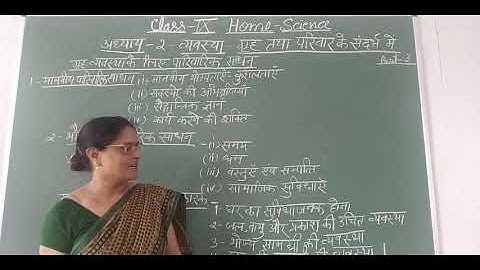 Class-IX Home-Science
अध्याय-2 व्यवस्था गृह तथा परिवार के संदर्भ में
गृह व्यवस्था के लिए पारिवारिक साधन Part-3
1- मानवीय पारिवारिक साधन (i)- मानवीय योग्यताएं- कुशलताएँ
(ii) सदस्यों की अभिवृत्तियाँ
(iii) सैद्धान्तिक ज्ञान
(iv) कार्य करने की शक्ति
2- पारिवारिक साधन -(i) समय
(ii) धन
(iii) वस्तुएँ एवं सम्पत्ति
(iv) सामाजिक सुविधाएँ
कारक -
1- घर का सुविधाजनक होना
2- जल, वायु और प्रकाश की उचित व्यवस्था
3- भोज्य सामग्री की व्यवस्था
की व्यवस्था